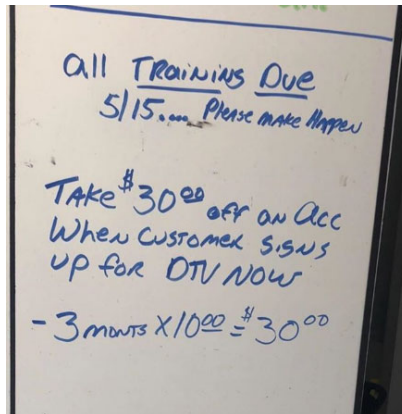 all Training Due
5/15.... Please make Happen
Take $30.00 off an acc
When customer signs
up for DTV NOW
- 3 monts X 10.00 = $30.00